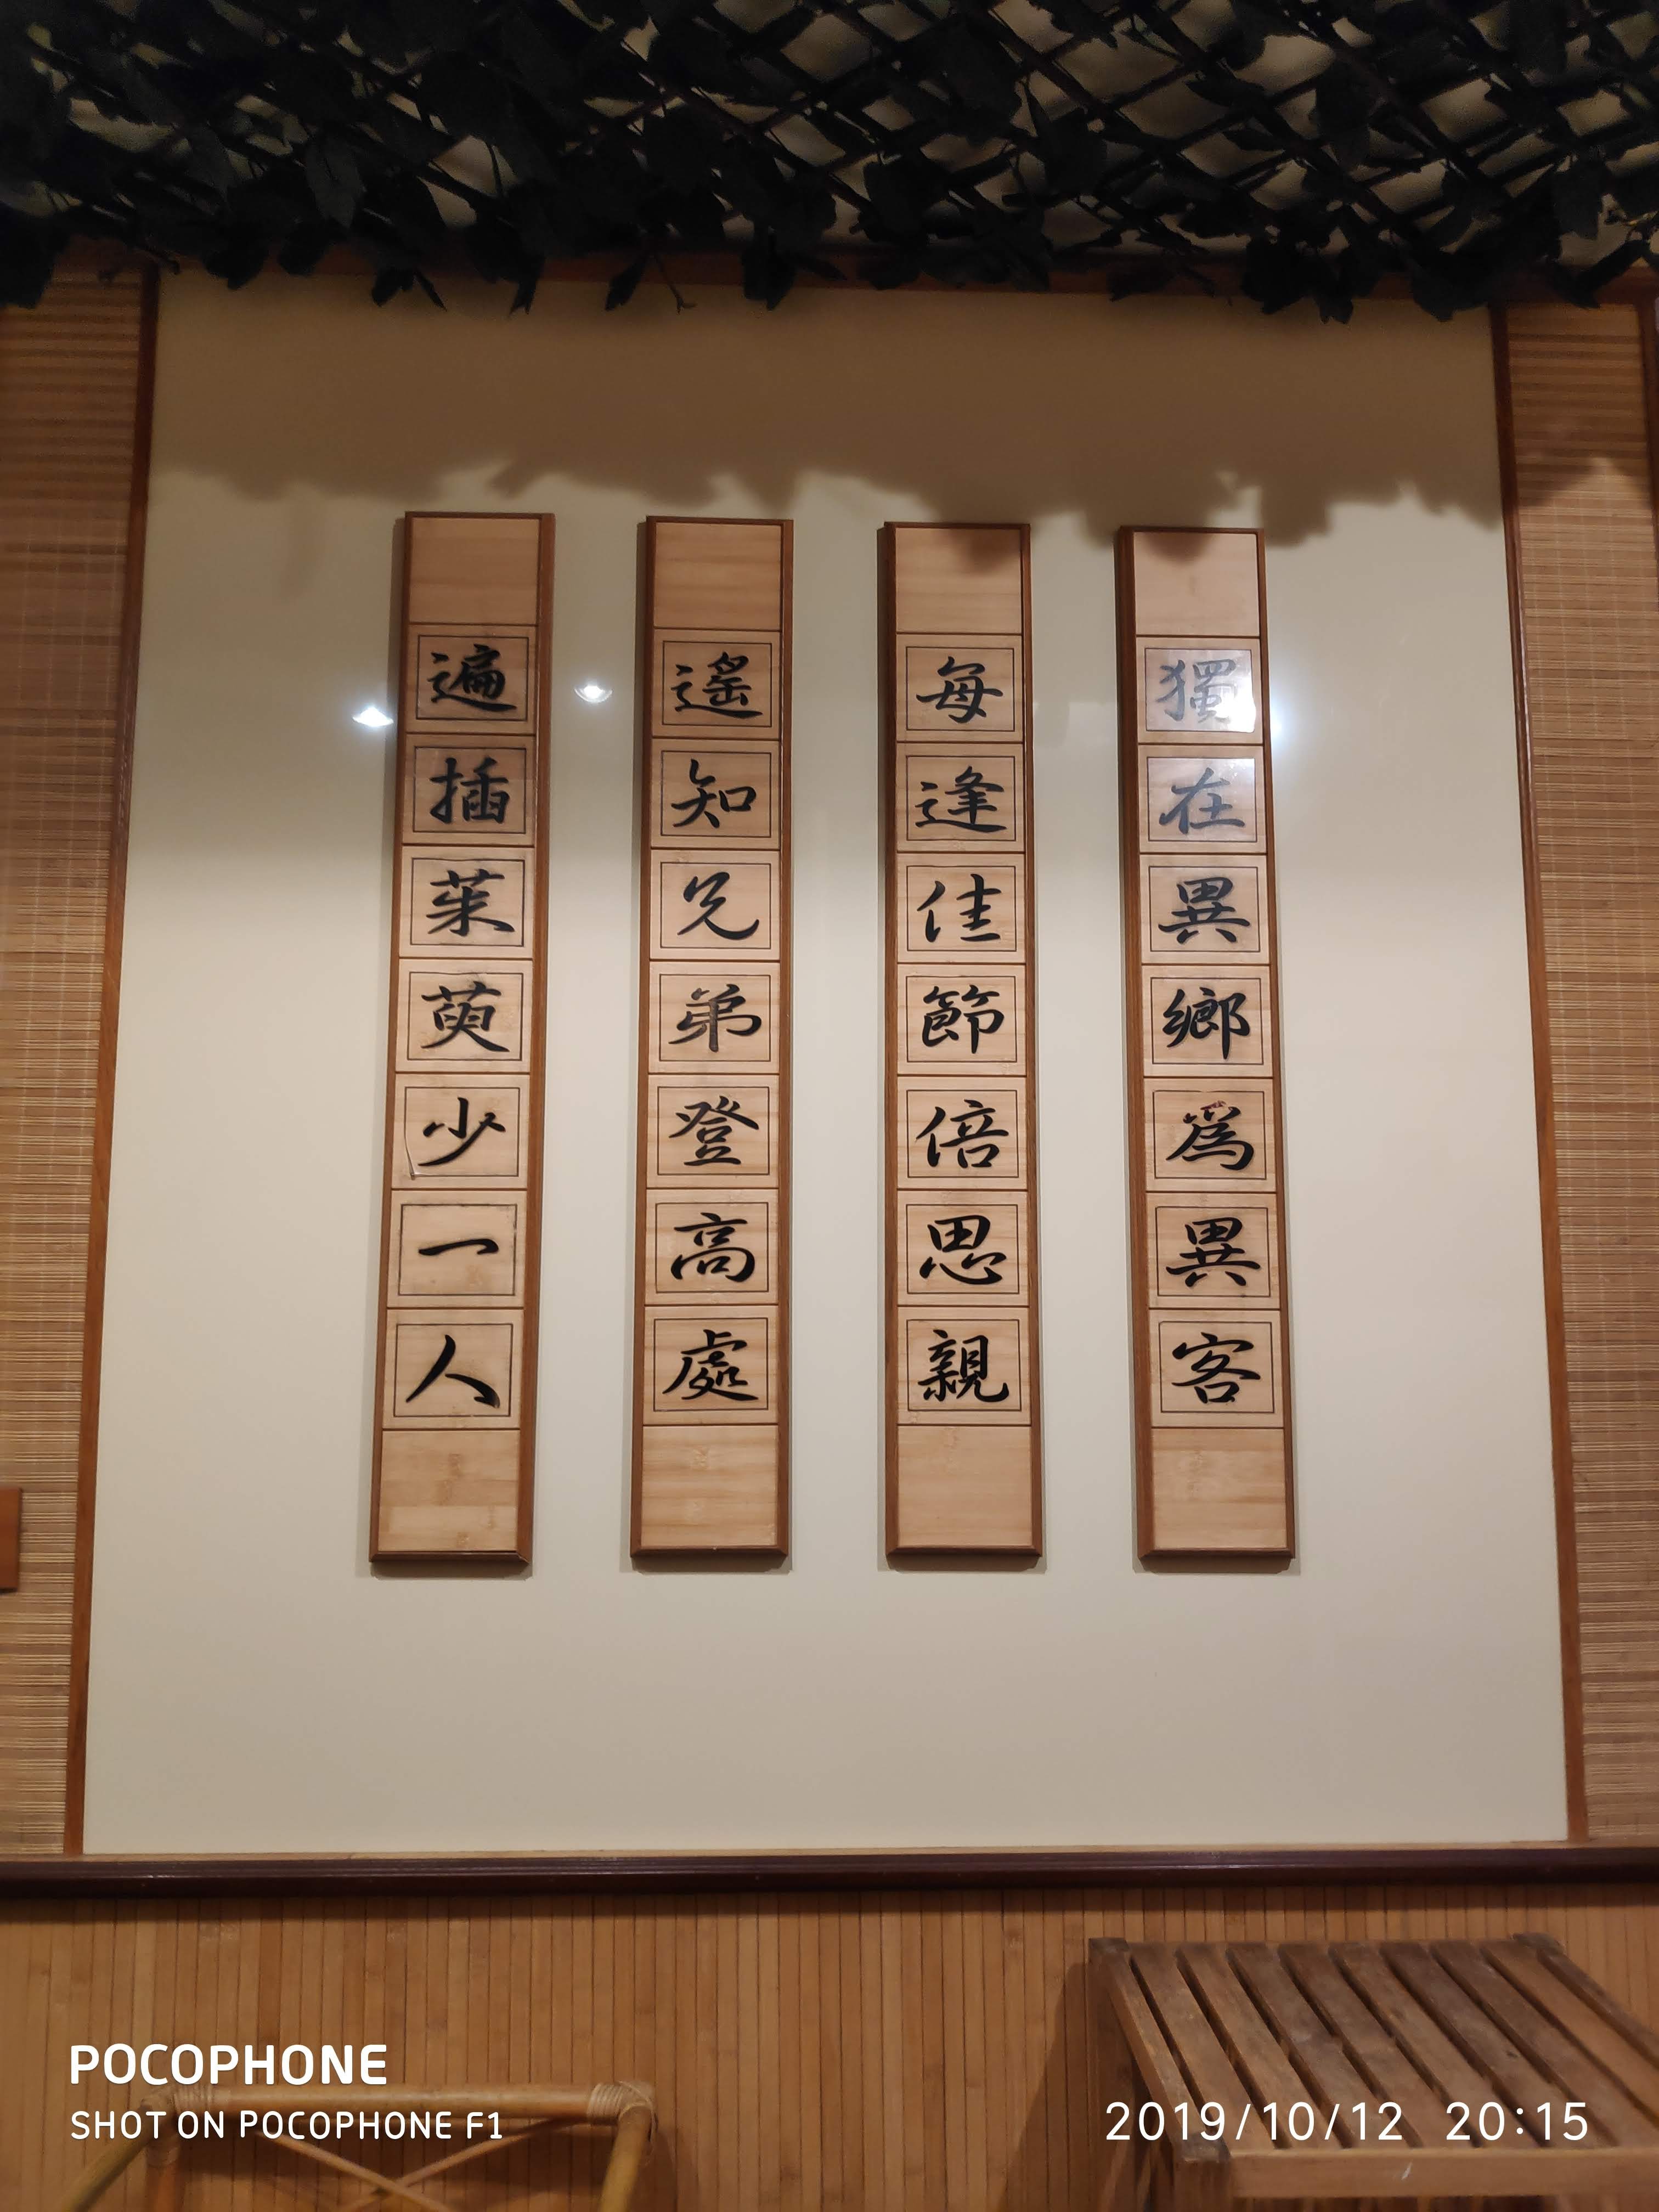 獨在異鄉為異客
每逢佳節倍思親
遙知兄弟登高處
遍插茱萸少一人
POCOPHONE
SHOT ON POCOPHONE F1
2019/10/12 20:15